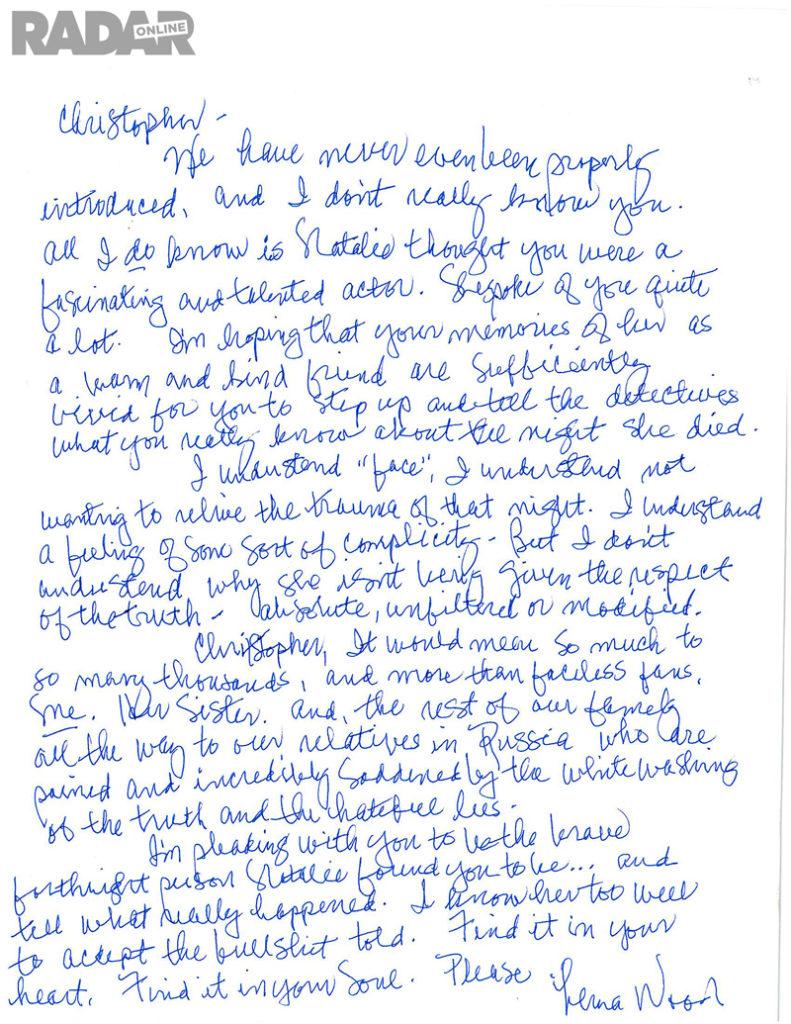 RADAR ONLINE
Christopher -
We have never even been properly
introduced, and I don't really know you.
All I do know is Natalie thought you were a
fascinating and talented actor. She spoke of you quite
a lot. I'm hoping that your memories of her as
a warm and kind friend are sufficiently
vivid for you to step up and tell the detectives
what you really know about the night she died.
I understand "face", I understand not
wanting to relive the trauma of that night. I understand
a feeling of some sort of complicity - But I don't
understand why she isn't being given the respect
of the truth - absolute, unfiltered or modified.
Christopher, It would mean so much to
so many thousands, and more than faceless fans,
me. Her Sister. And, the rest of our family
all the way to our relatives in Russia who are
pained and incredibly saddened by the white washing
of the truth and the hateful lies.
I'm pleading with you to be the brave
forthright person Natalie found you to be... and
tell what really happened. I know her too well
to accept the bullshit told. Find it in your
heart. Find it in your Soul. Please
Lana Wood